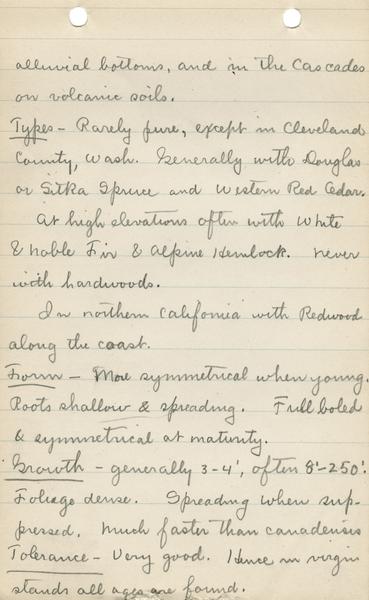 alluvial bottoms, and in the Cascades
on volcanic soils.
Types - Rarely pure, except in Cleveland
County, Wash. Generally with Douglas
or Sitka Spruce and Western Red Cedar.
At high elevations often with White
& Noble Fir & Alpine Hemlock. Never
with hardwoods.
In northern California with Redwood
along the coast.
Form - More symmetrical when young.
Roots shallow & spreading. Full boled
& symmetrical at maturity.
Growth - generally 3-4', often 8'-250'.
Foliage dense. Spreading when sup-
pressed. Much faster than canadensis
Tolerance - Very good. Hence in virgin
stands all ages are found.